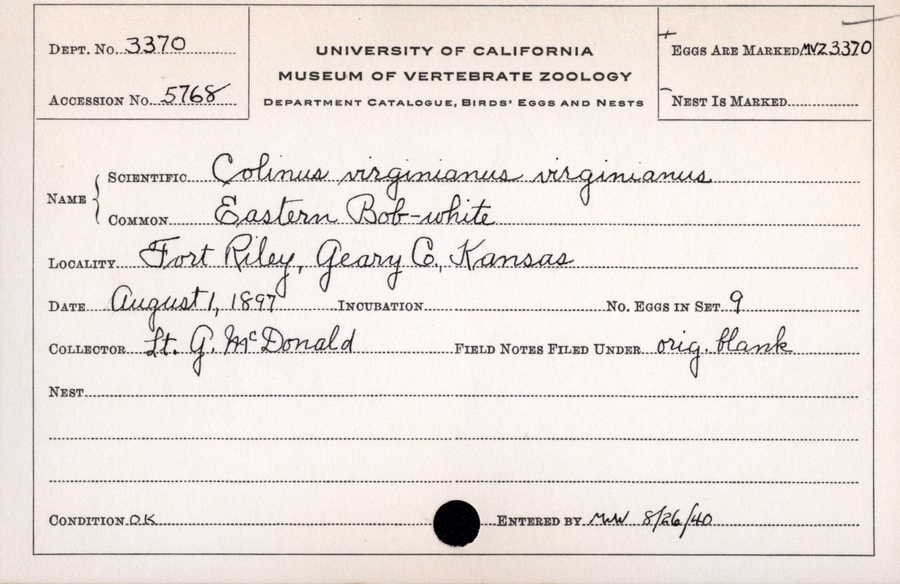 DEPT. NO. 3370
ACCESSION NO. 5768
UNIVERSITY OF CALIFORNIA
MUSEUM OF VERTEBRATE ZOOLOGY
DEPARTMENT CATALOGUE, BIRDS' EGGS AND NESTS
EGGS ARE MARKED MVZ3370
NEST IS MARKED
NAME
SCIENTIFIC Colinus virginianus virginianus
COMMON Eastern Bob-white
LOCALITY Fort Riley, Geary C., Kansas
DATE August 1, 1897 INCUBATION NO. EGGS IN SET 9
COLLECTOR Lt. G. McDonald FIELD NOTES FILED UNDER orig. blank
NEST
CONDITION OK ENTERED BY MW 8/26/40